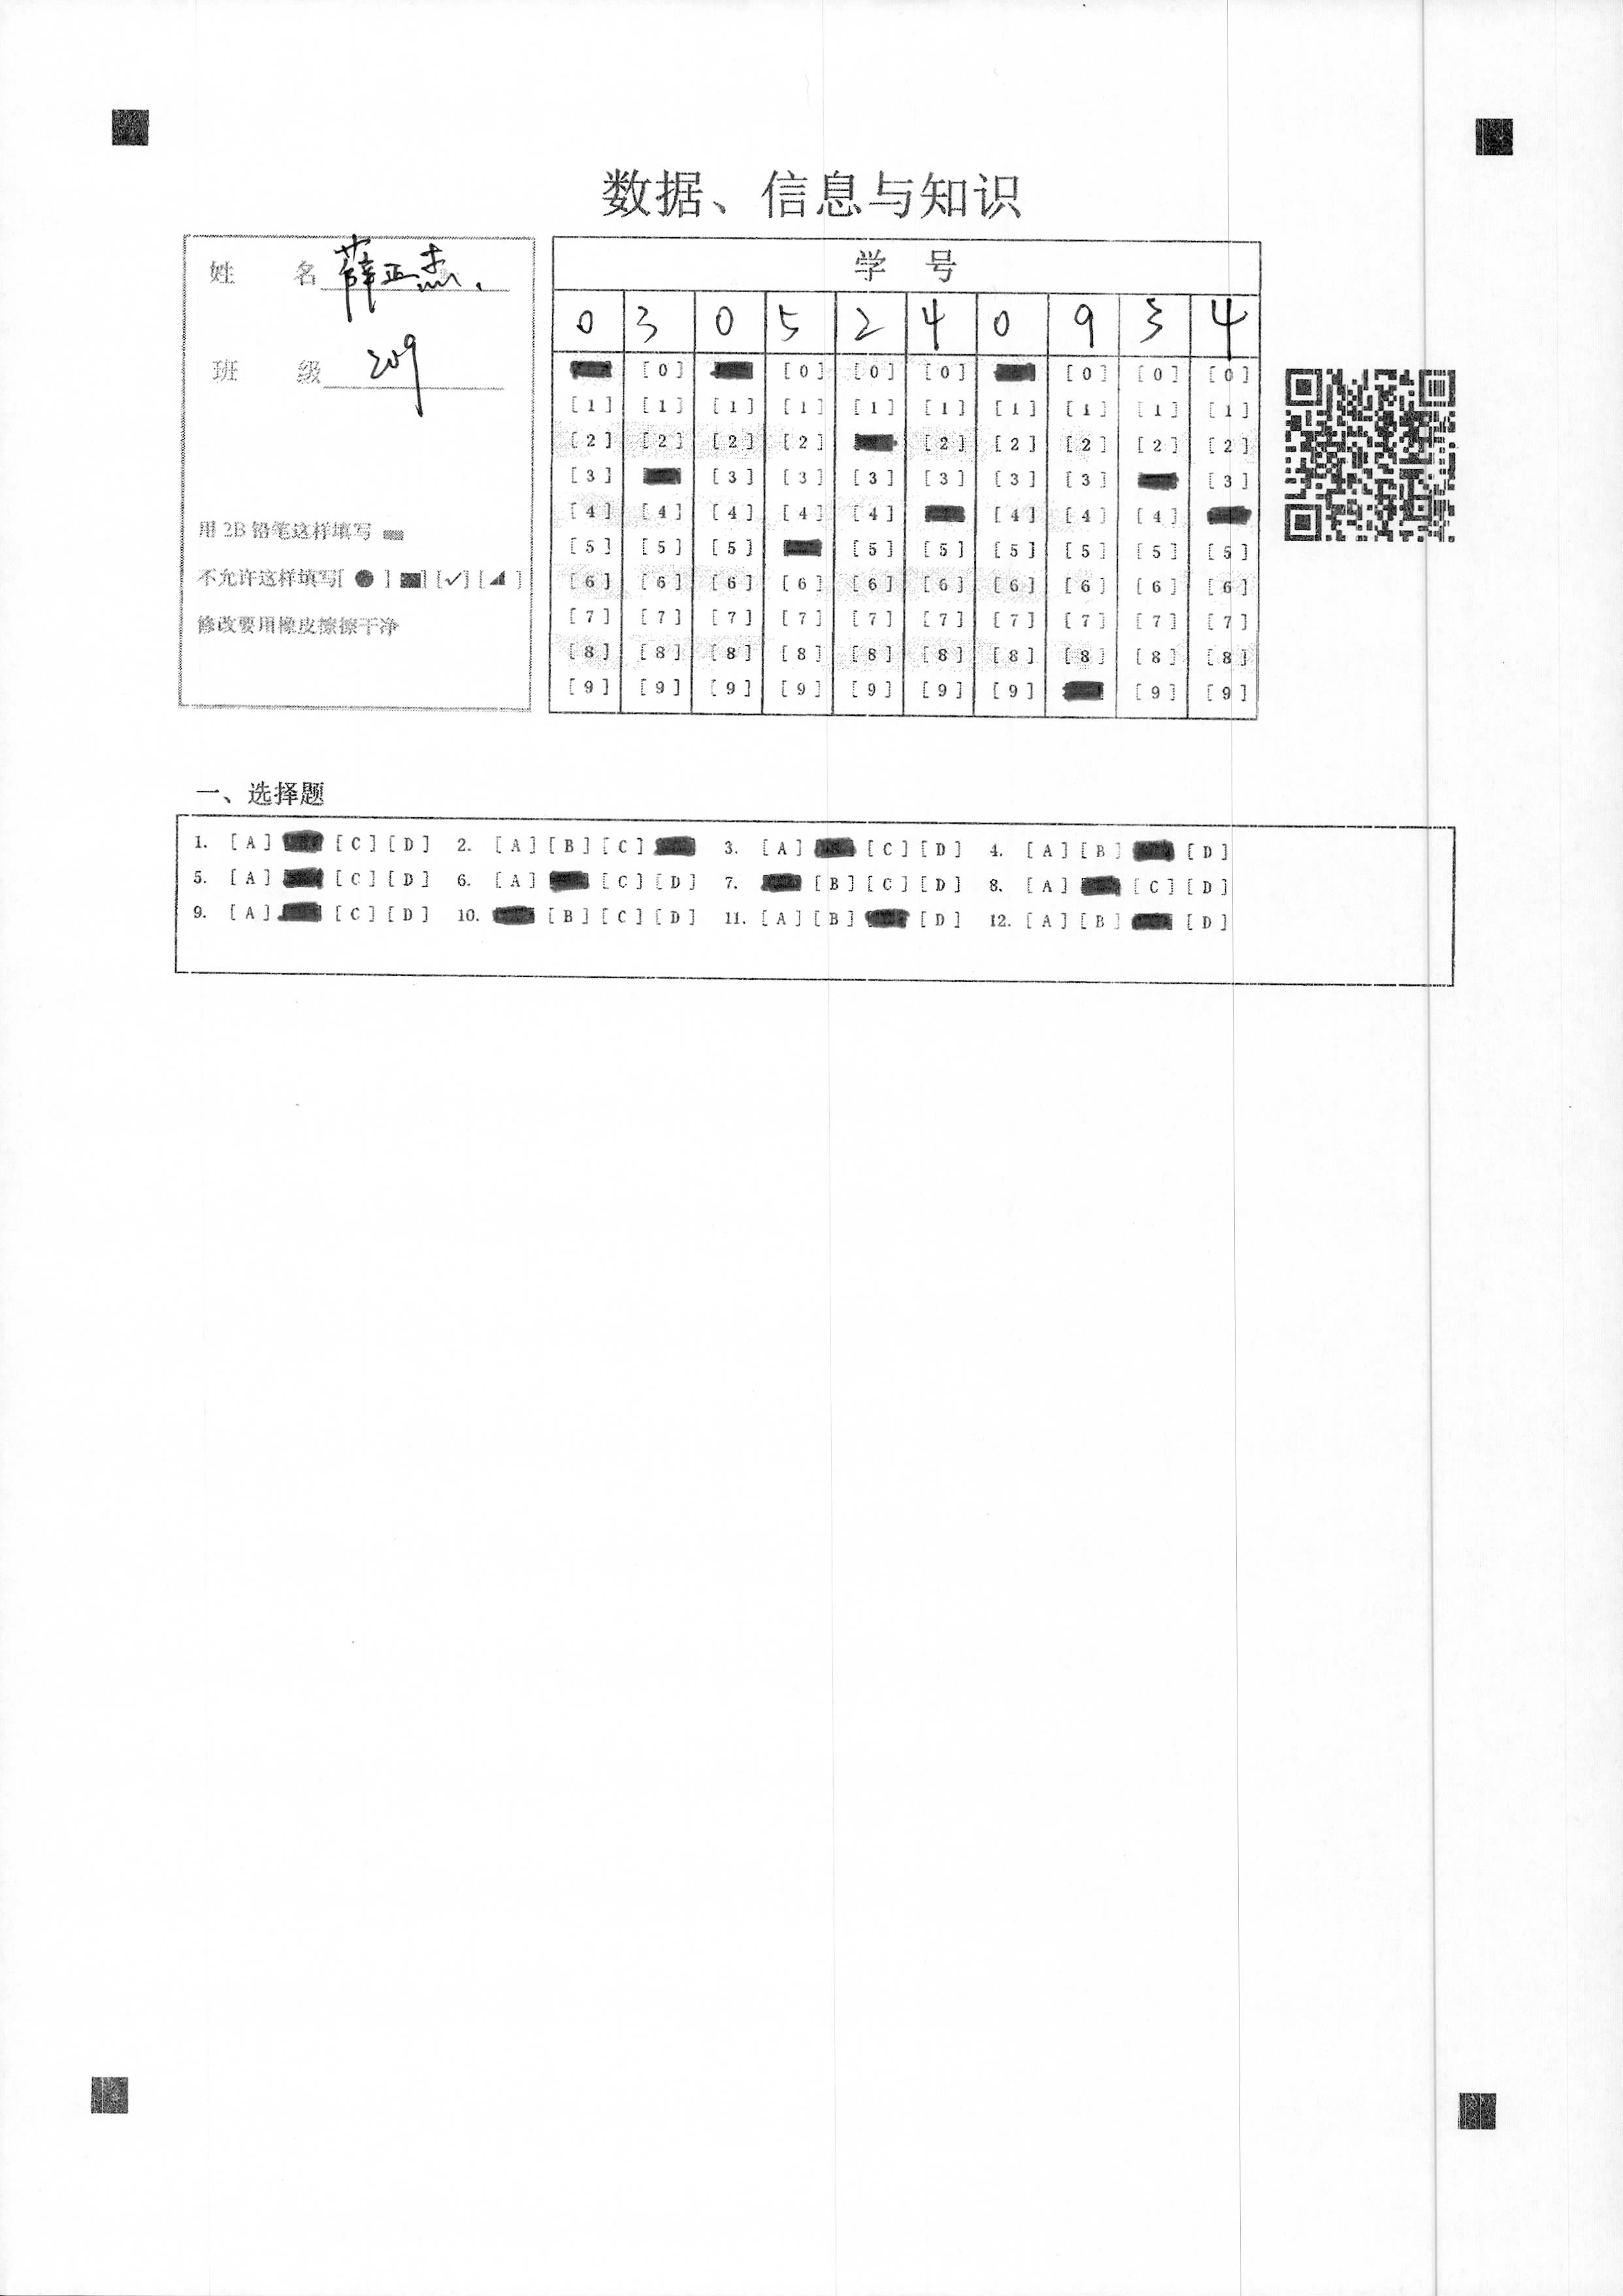 数据、信息与知识
姓 名 薛正杰.
班 级 209
用 2B 铅笔这样填写
不允许这样填写[ ● ] [■] [✓] [◢ ]
修改要用橡皮擦擦干净
学 号
0 3 0 5 2 4 0 9 3 4
[0] [0] [0] [0] [0] [0]
[1] [1] [1] [1] [1] [1] [1] [1] [1] [1]
[2] [2] [2] [2] [2] [2] [2] [2] [2]
[3] [3] [3] [3] [3] [3] [3] [3]
[4] [4] [4] [4] [4] [4] [4] [4]
[5] [5] [5] [5] [5] [5] [5] [5] [5]
[6] [6] [6] [6] [6] [6] [6] [6] [6] [6]
[7] [7] [7] [7] [7] [7] [7] [7] [7] [7]
[8] [8] [8] [8] [8] [8] [8] [8] [8] [8]
[9] [9] [9] [9] [9] [9] [9] [9] [9]
一、选择题
1. [A] [C] [D] 2. [A] [B] [C] 3. [A] [C] [D] 4. [A] [B] [D]
5. [A] [C] [D] 6. [A] [C] [D] 7. [B] [C] [D] 8. [A] [C] [D]
9. [A] [C] [D] 10. [B] [C] [D] 11. [A] [B] [D] 12. [A] [B] [D]